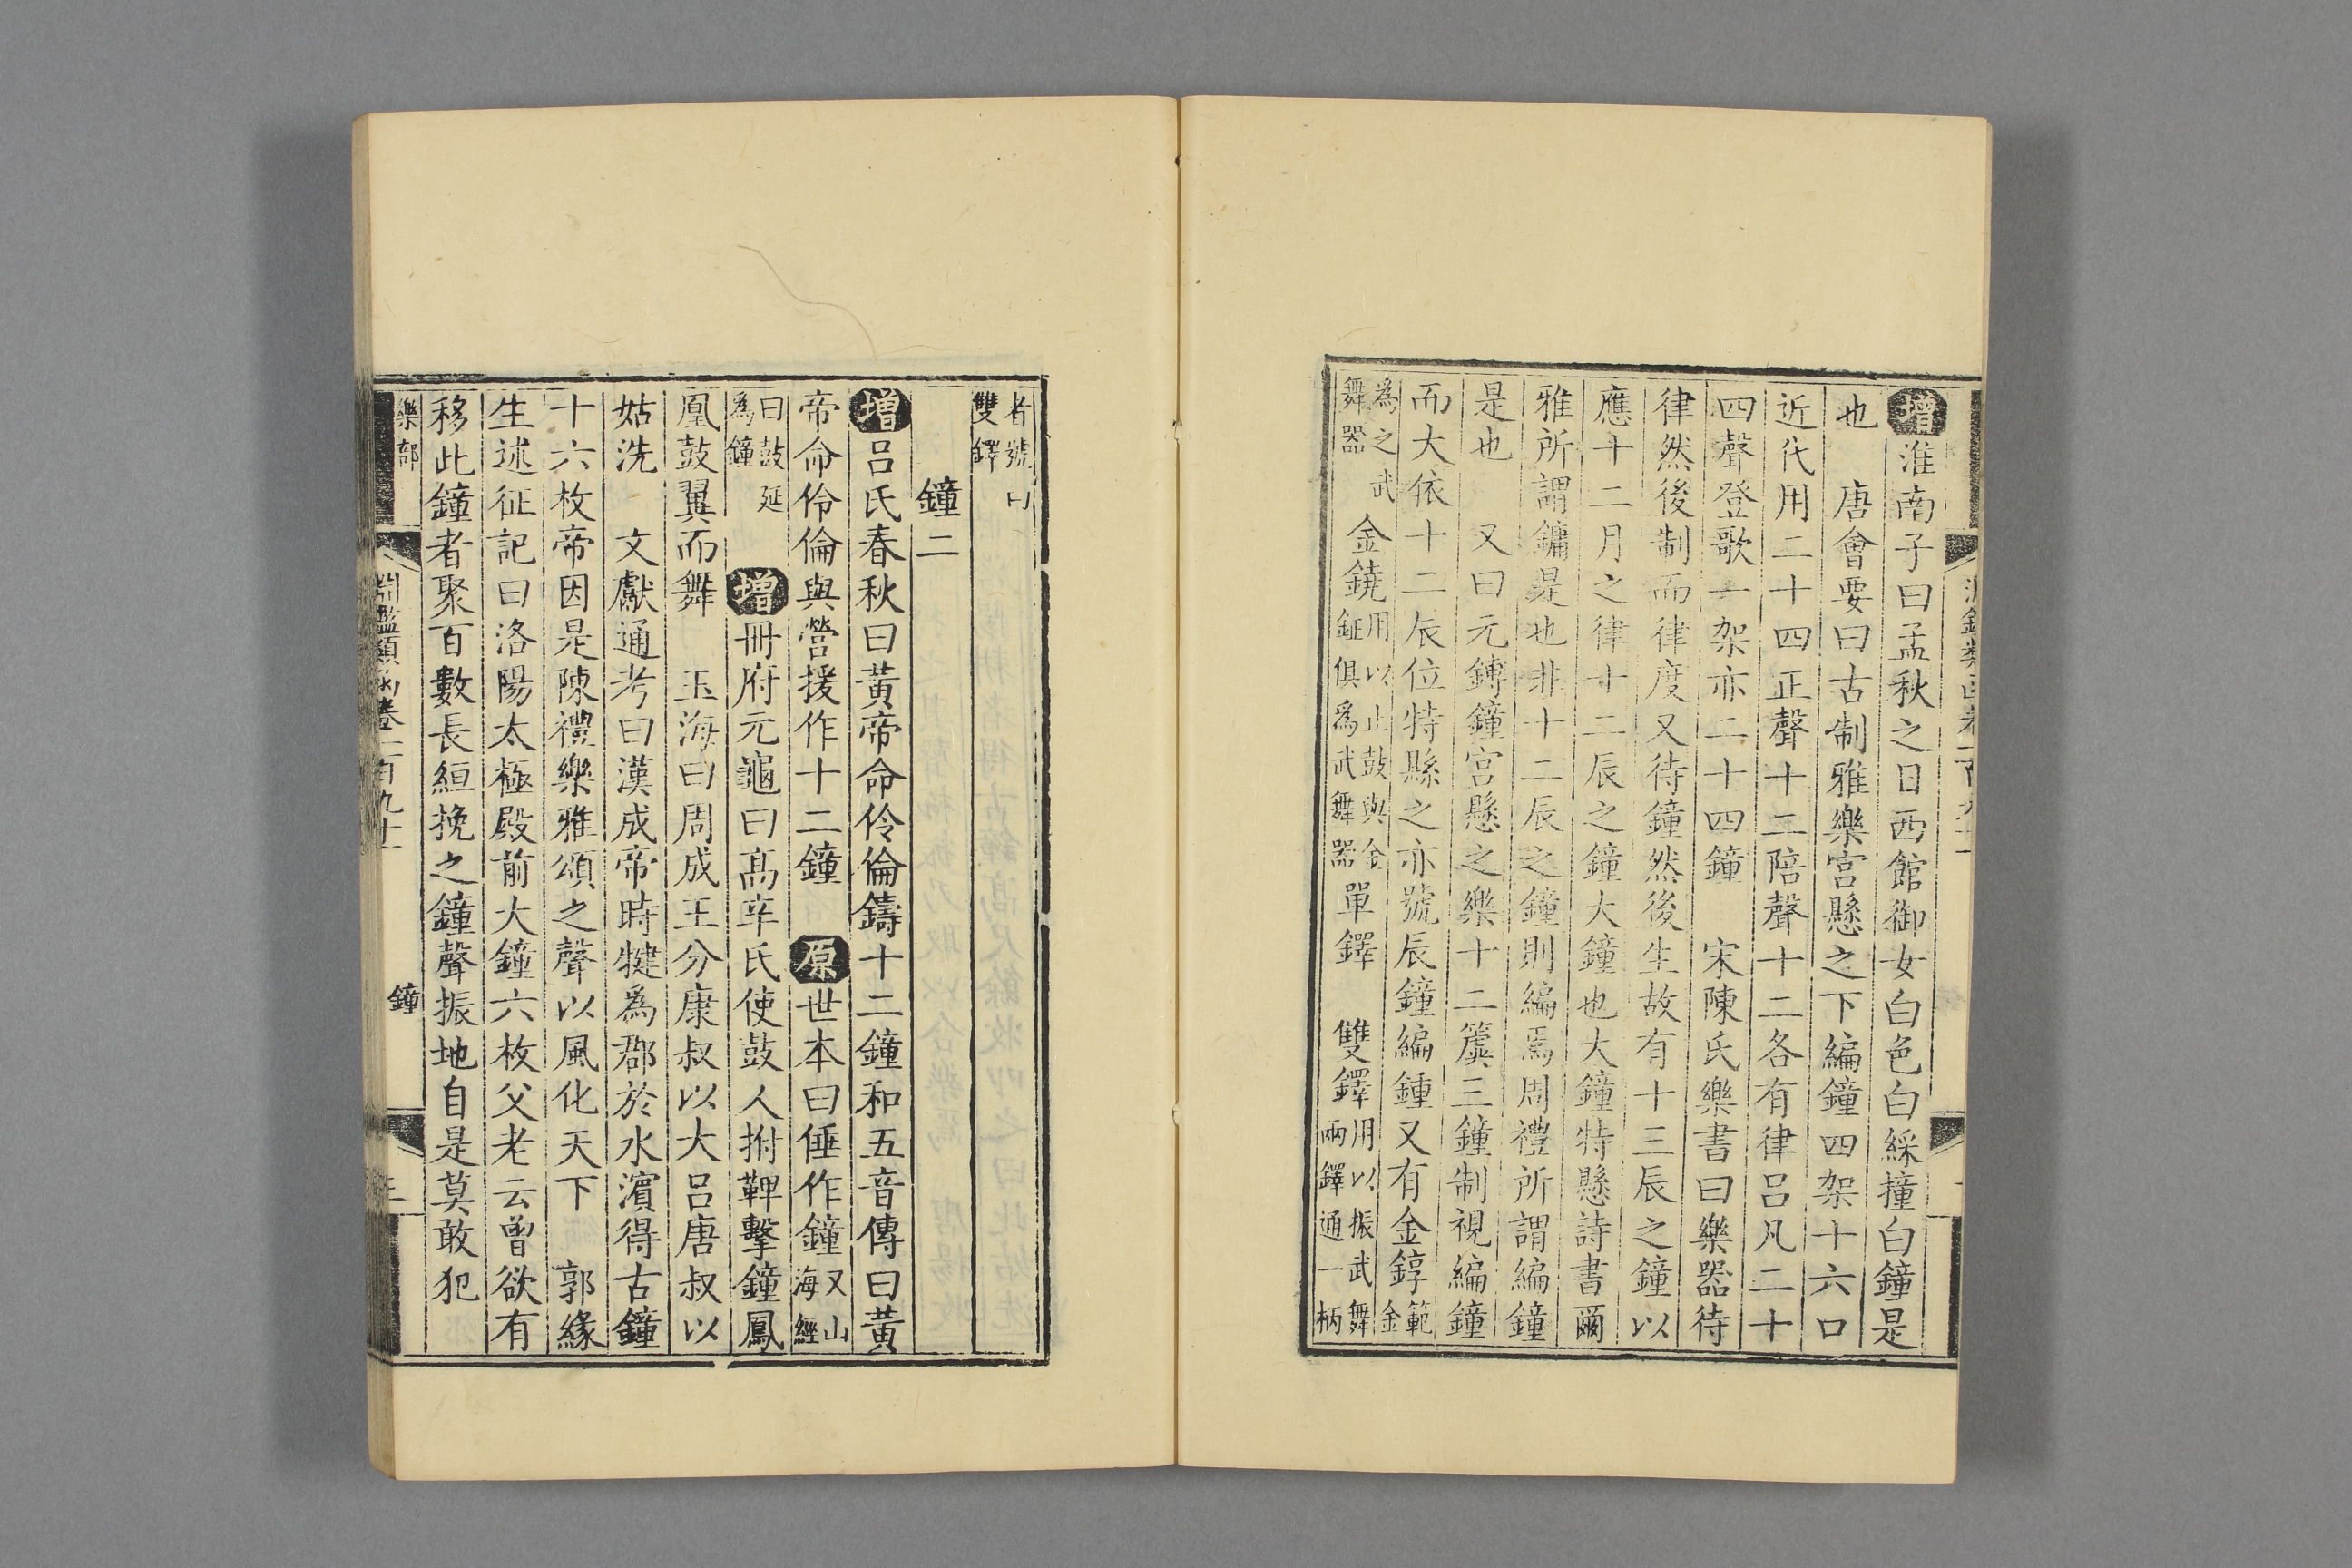 增淮南子曰孟秋之日西館御女白色白綵撞白鐘是
也　唐會要曰古制雅樂宮懸之下編鐘四架十六口
近代用二十四正聲十二陪聲十二各有律呂凡二十
四聲登歌一架亦二十四鐘　宋陳氏樂書曰樂器待
律然後制而律度又待鐘然後生故有十三辰之鐘以
應十二月之律十二辰之鐘大鐘也大鐘特懸詩書爾
雅所謂鏞是也非十二辰之鐘則編焉周禮所謂編鐘
是也　又曰元鎛鐘宮懸之樂十二簴三鐘制視編鐘
而大依十二辰位特縣之亦號辰鐘編鍾又有金錞範金
為之武舞器　金鐃用以止鼓與金鉦俱為武舞器單鐸　雙鐸用以振武舞兩鐸通一柄
者號曰雙鐸
鐘二
增呂氏春秋曰黃帝命伶倫鑄十二鐘和五音傳曰黃
帝命伶倫與營援作十二鐘　原世本曰倕作鐘又山海經
曰鼓延為鐘　增冊府元龜曰高辛氏使鼓人拊鞞擊鐘鳳
凰鼓翼而舞　玉海曰周成王分康叔以大呂唐叔以
姑洗　文獻通考曰漢成帝時犍為郡於水濱得古鐘
十六枚帝因是陳禮樂雅頌之聲以風化天下　郭緣
生述征記曰洛陽太極殿前大鐘六枚父老云曾欲有
移此鐘者聚百數長絙挽之鐘聲振地自是莫敢犯
樂部　淵鑑類函卷一百九十　鐘